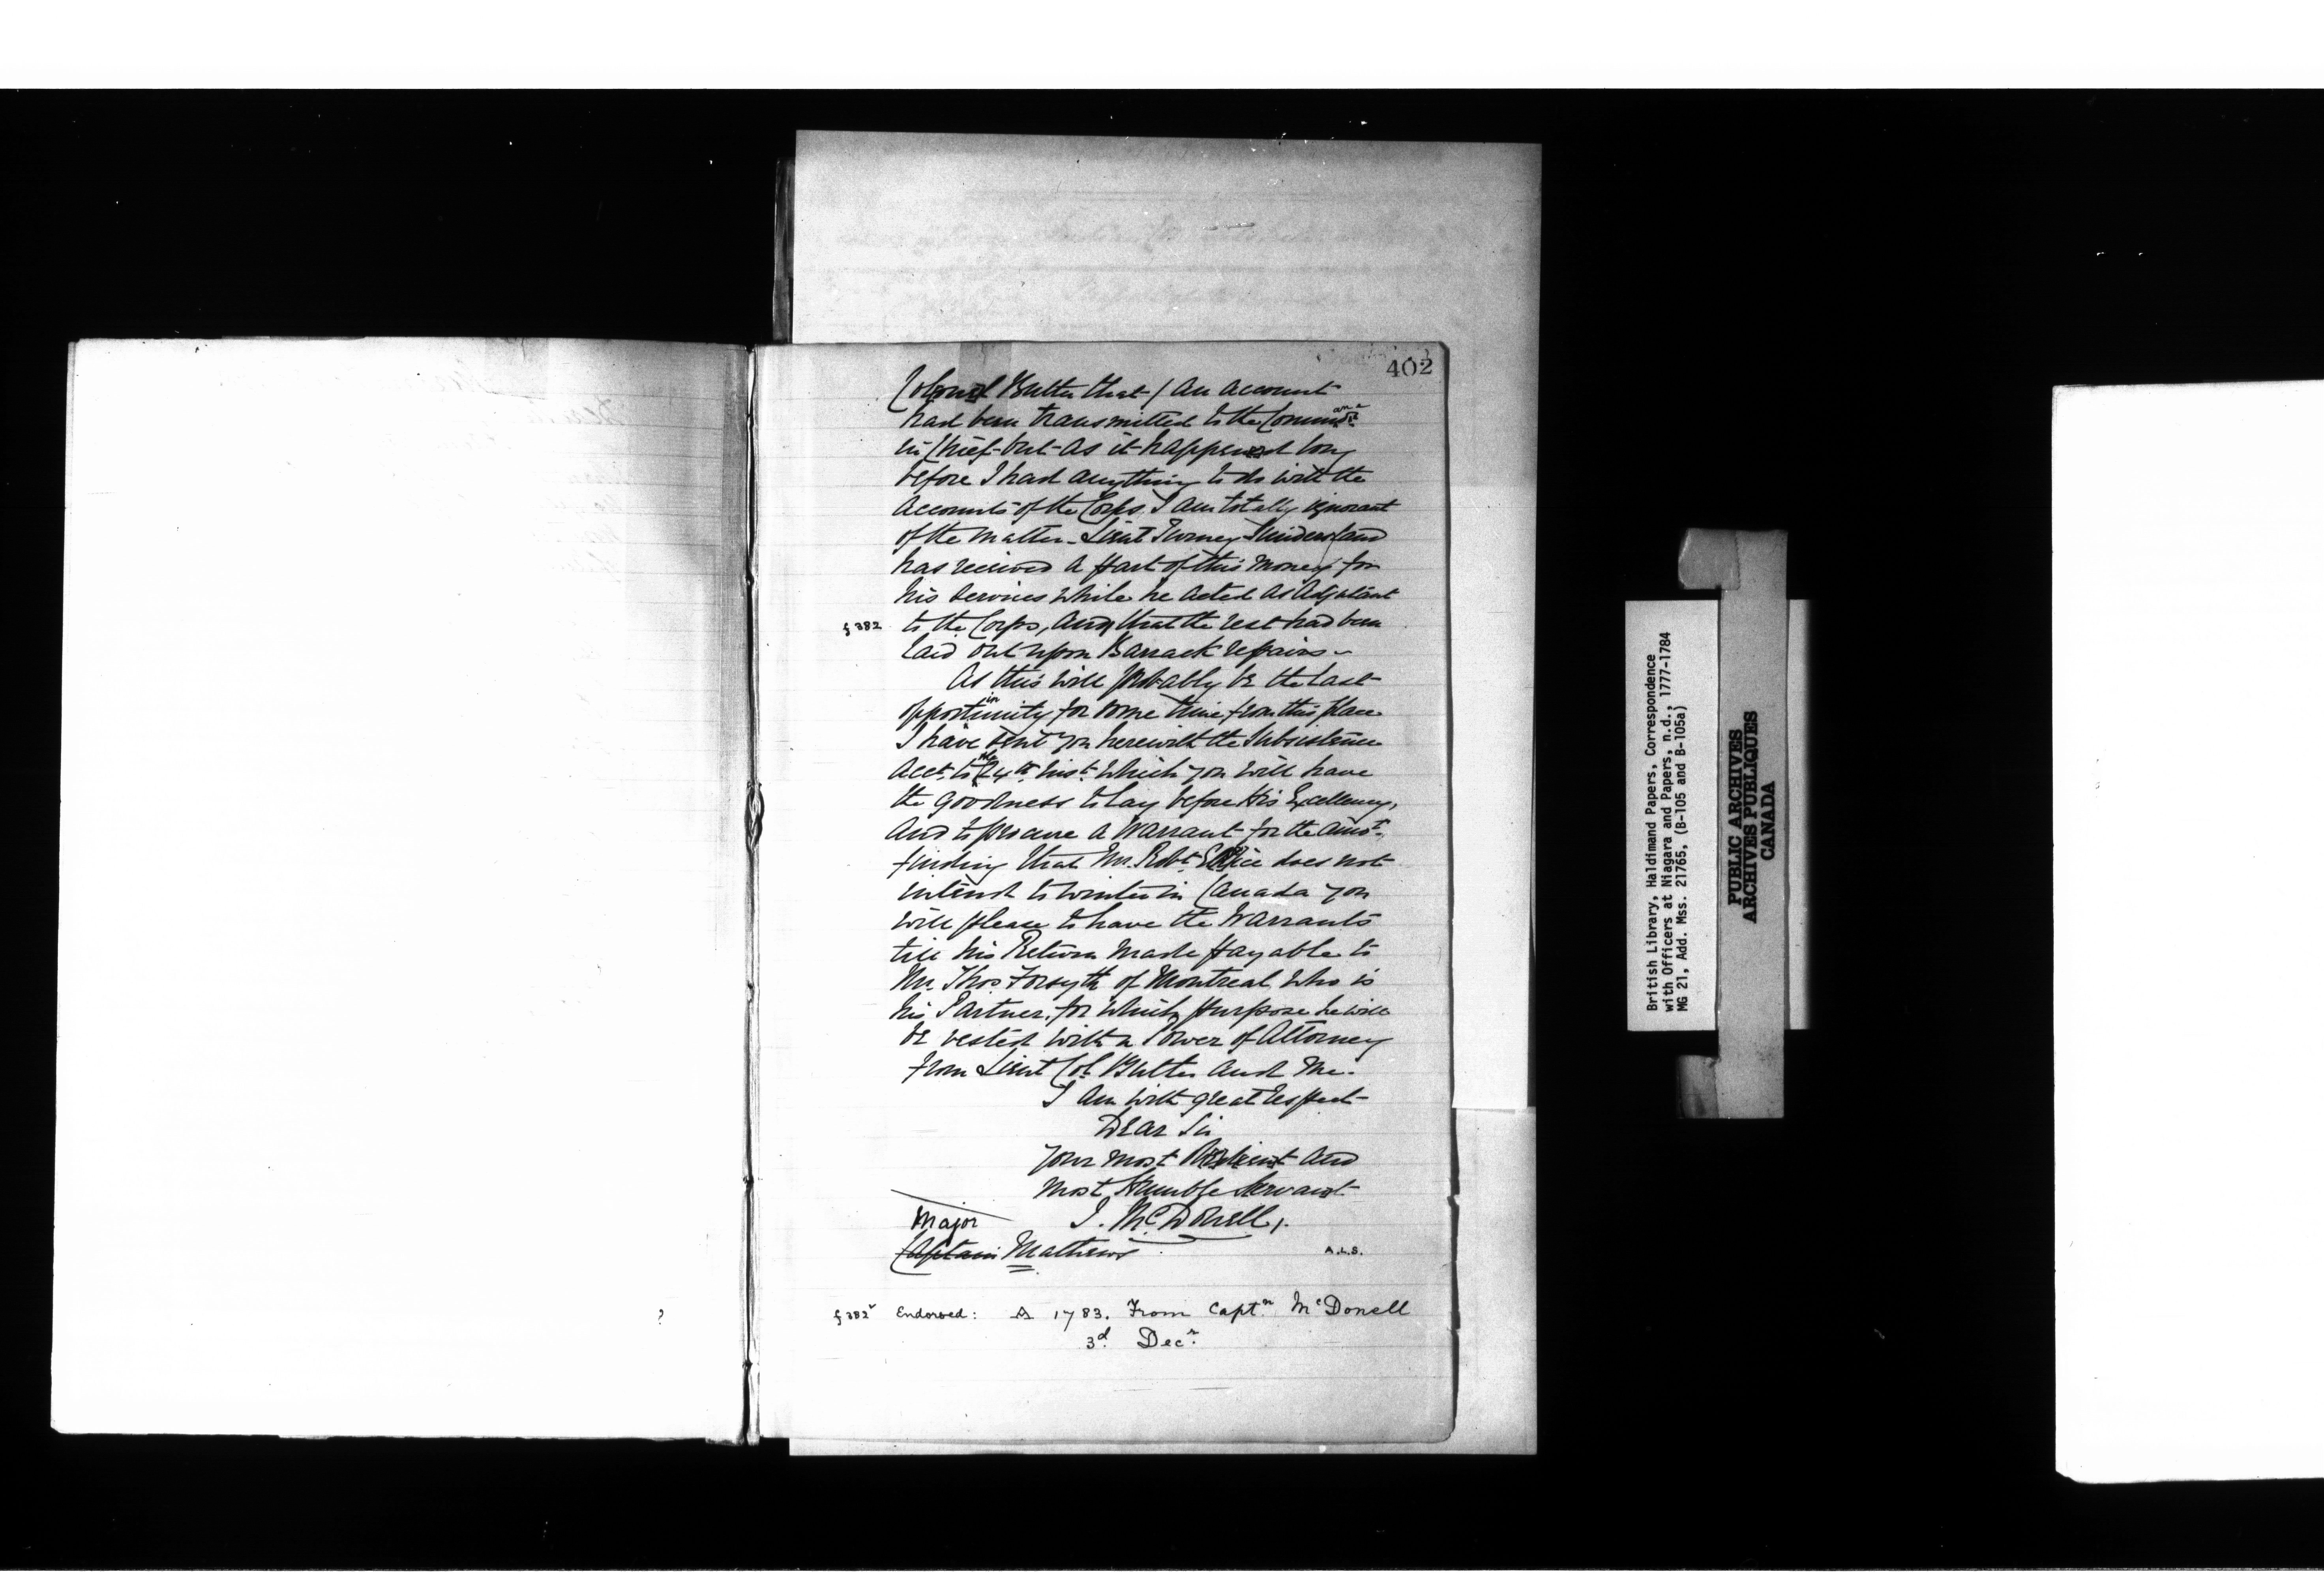 402
Colonel Butler that / an account
had been transmitted to the Command.r
in Chief but as it happened long
before I had anything to do with the
accounts of the Corps I am totally ignorant
of the matter. Lieut Turney I understand
has received a part of this money for
his services while he acted as Adjutant
f 382 to the Corps, and that the rest had been
laid out upon Barrack repairs –
As this will probably be the last
opportunity for some time from this place
I have sent you herewith the Subsistence
Acct. to the 24th inst. which you will have
the goodness to lay before His Excellency,
and to procure a Warrant for the amot.
finding that Mr. Robt. Ellice does not
intend to winter in Canada you
will please to have the Warrants
till his Return made payable to
Mr. Thos Forsyth of Montreal who is
his Partner, for which purpose he will
be vested with a Power of Attorney
from Lieut Col. Butler and me.
I am with great respect
Dear Sir
Your most Obedient and
most Humble Servant
Major J. McDonell,.
Captain Mathews
A.L.S.
f 382v Endorsed: A 1783. From Captn. McDonell
3d. Decr.
British Library, Haldimand Papers, Correspondence
with Officers at Niagara and Papers, n.d., 1777-1784
MG 21, Add. Mss. 21765, (B-105 and B-105a)
PUBLIC ARCHIVES
ARCHIVES PUBLIQUES
CANADA